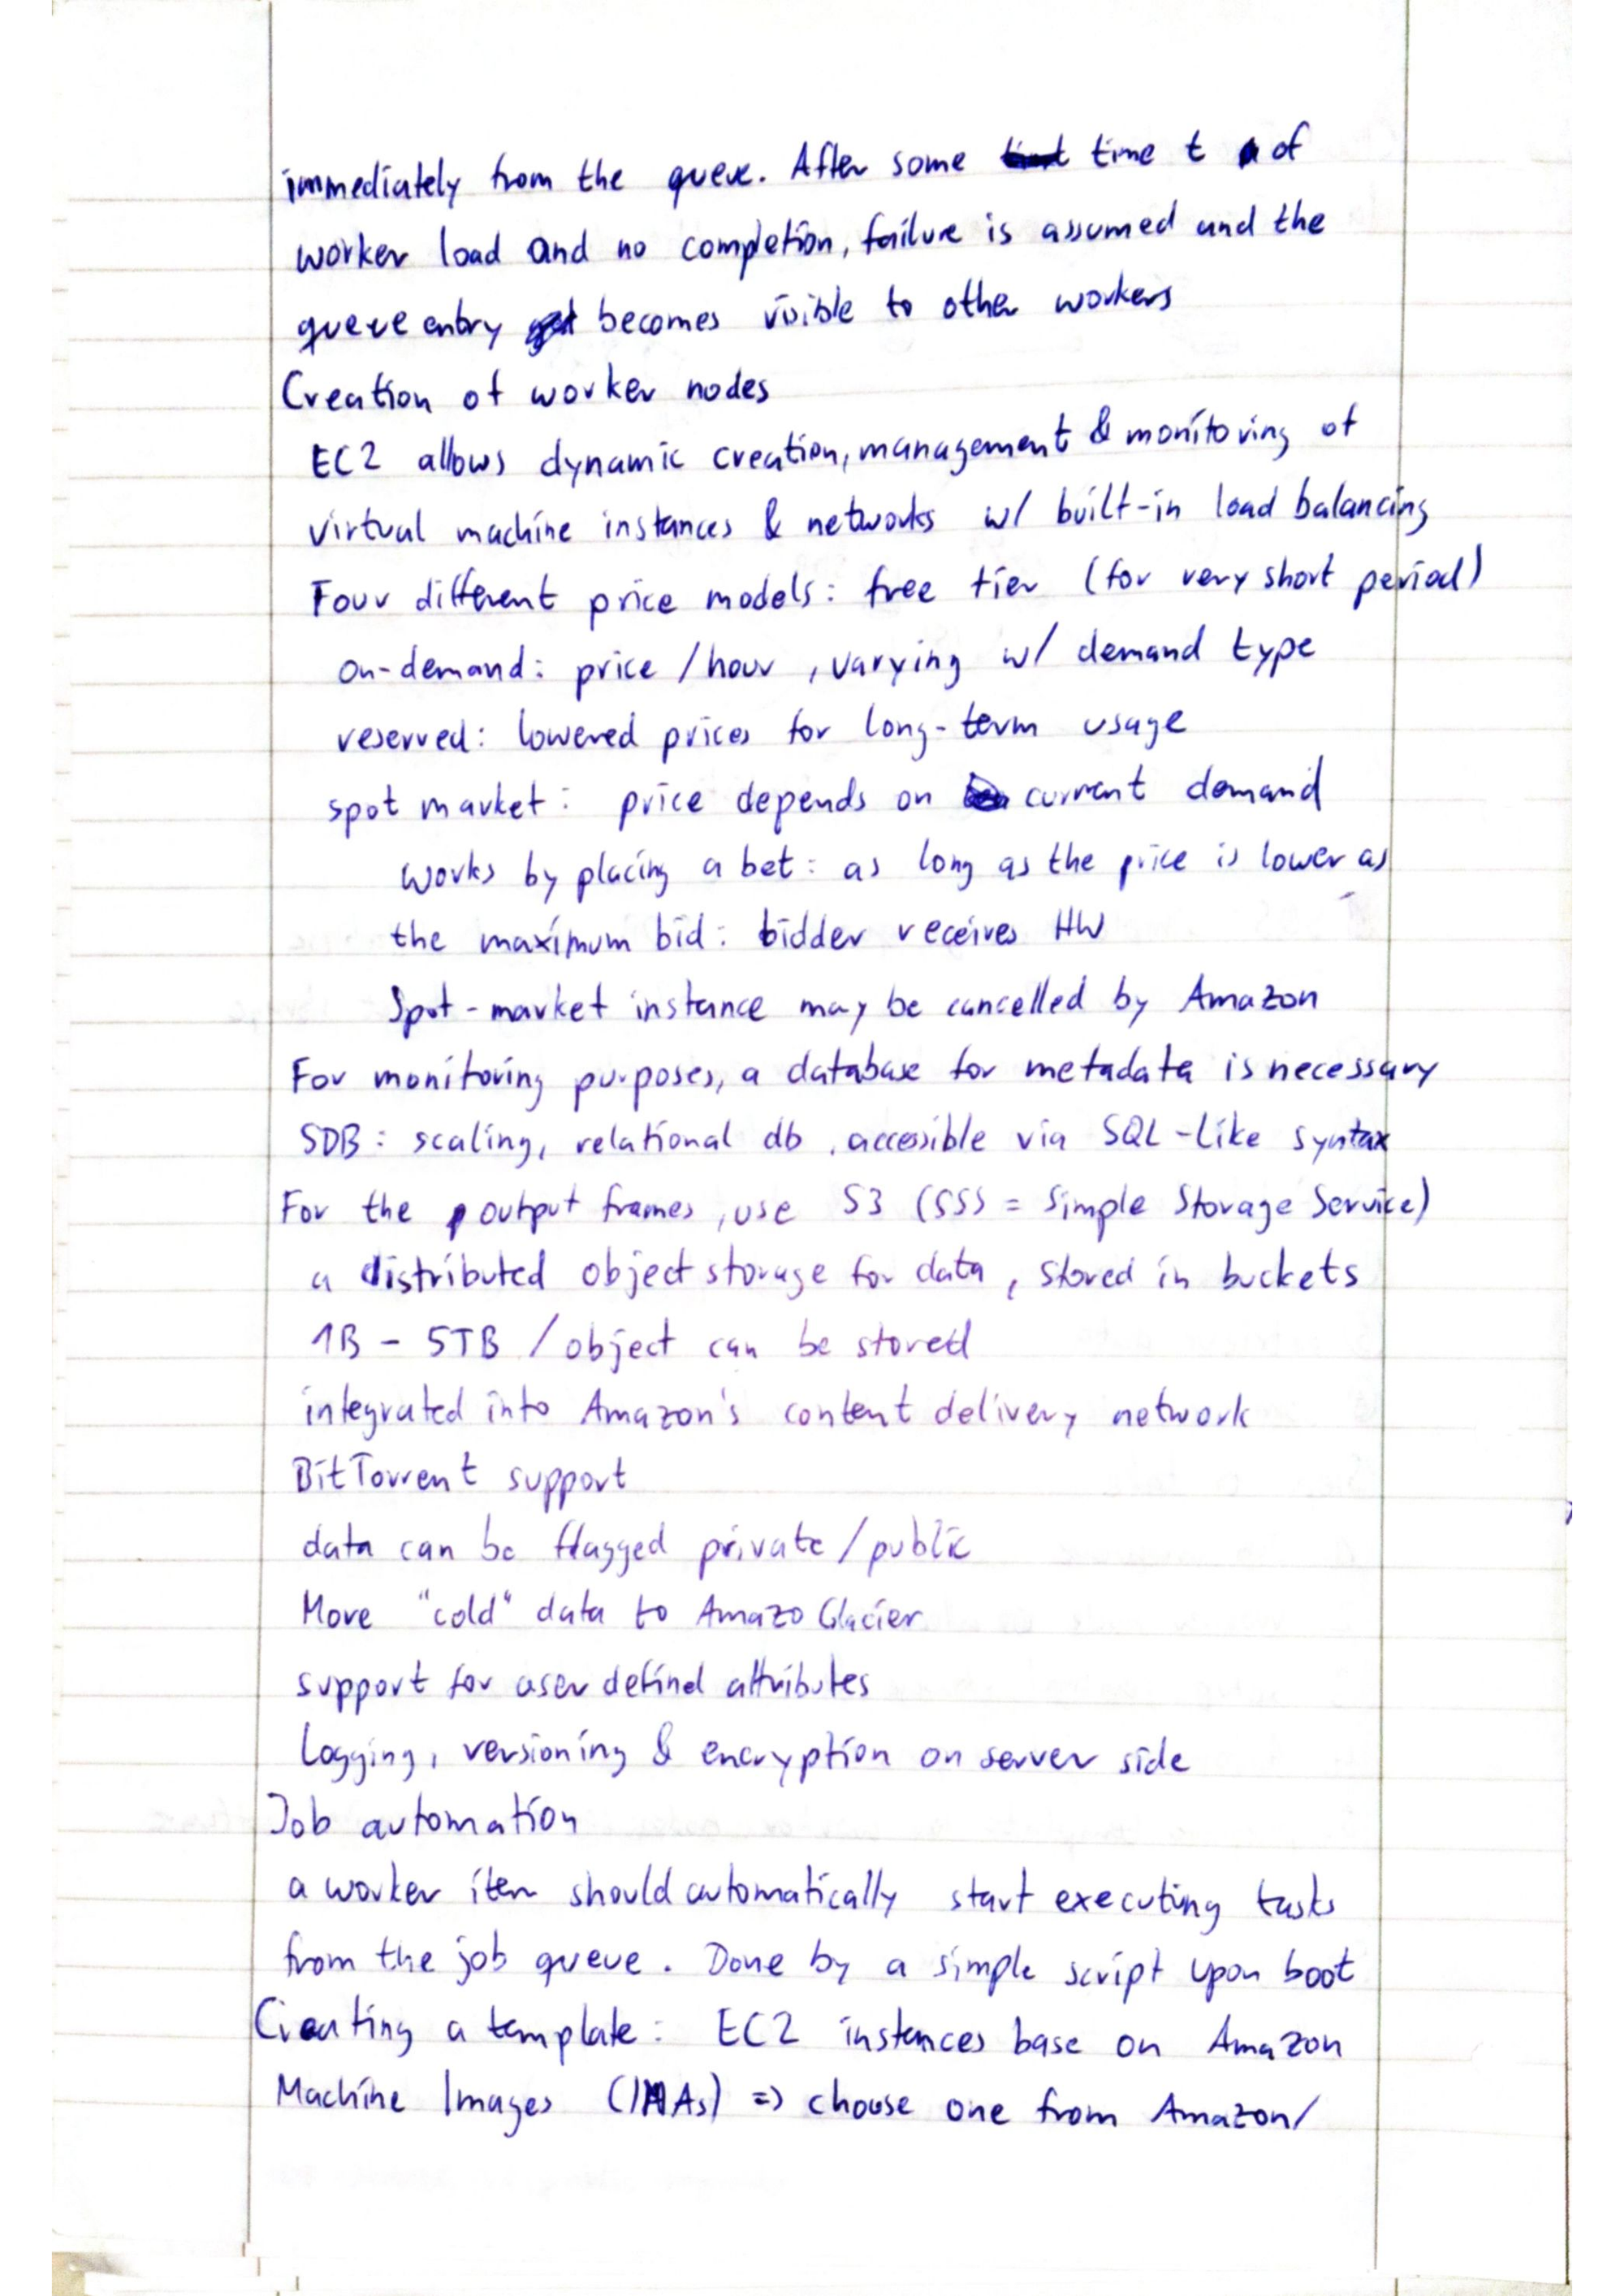 immediately from the queue. After some time t of
worker load and no completion, failure is assumed and the
queue entry becomes visible to other workers
Creation of worker nodes
EC2 allows dynamic creation, management & monitoring of
virtual machine instances & networks w/ built-in load balancing
Four different price models: free tier (for very short period)
on-demand: price /hour, varying w/ demand type
reserved: lowered prices for long-term usage
spot market: price depends on current demand
works by placing a bet: as long as the price is lower as
the maximum bid: bidder receives HW
Spot-market instance may be cancelled by Amazon
For monitoring purposes, a database for metadata is necessary
SDB: scaling, relational db, accessible via SQL-like syntax
For the output frames, use S3 (SSS = Simple Storage Service)
a distributed object storage for data, stored in buckets
1B - 5TB / object can be stored
integrated into Amazon's content delivery network
BitTorrent support
data can be flagged private/public
Move "cold" data to Amazo Glacier
support for user defind attributes
Logging, versioning & encryption on server side
Job automation
a worker item should automatically start executing tasks
from the job queue. Done by a simple script upon boot
Creating a template: EC2 instances base on Amazon
Machine Images (IMAs) => choose one from Amazon/